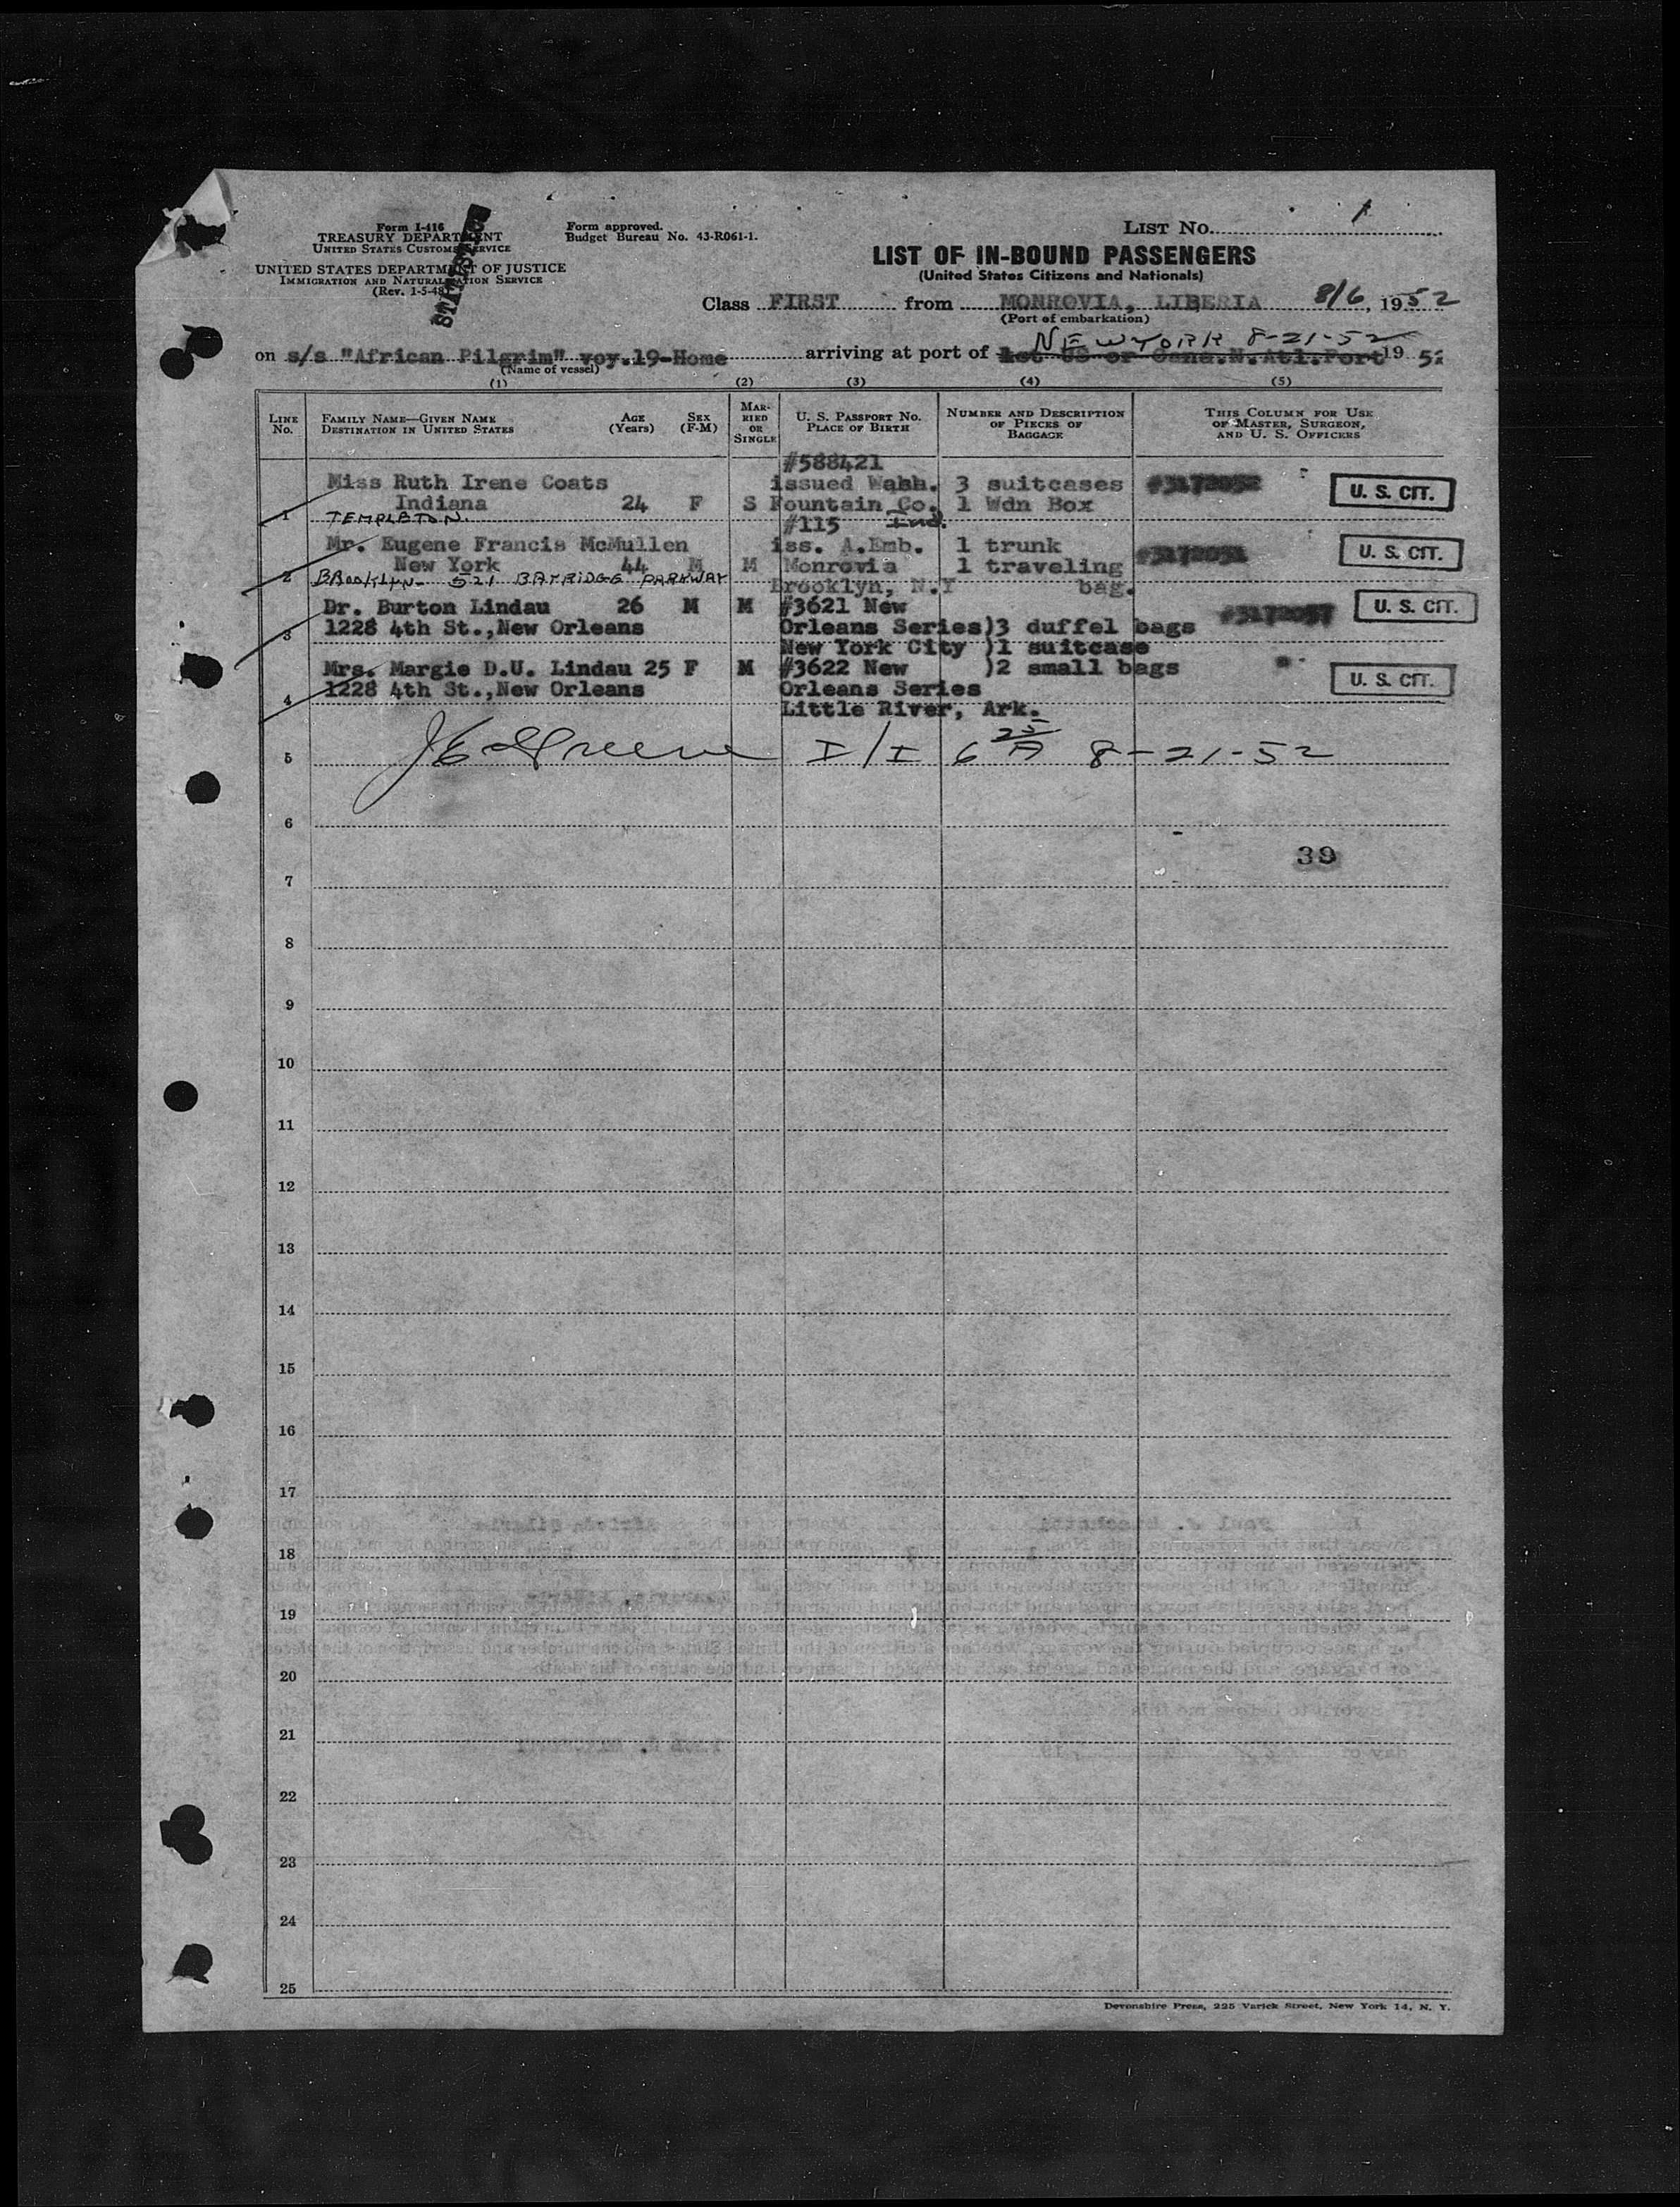 Form I-416
TREASURY DEPARTMENT
UNITED STATES CUSTOMS SERVICE
UNITED STATES DEPARTMENT OF JUSTICE
IMMIGRATION AND NATURALIZATION SERVICE
(Rev. 1-5-48)
Form approved.
Budget Bureau No. 43-R061-1.
LIST No. 1
LIST OF IN-BOUND PASSENGERS
(United States Citizens and Nationals)
Class FIRST from MONROVIA, LIBERIA 8/6, 1952
(Port of embarkation)
NEW YORK 8-21-52
on s/s "African Pilgrim" voy.19-Home arriving at port of 1st US or Cana.N.Atl.Port 19 52
(Name of vessel)
(1) (2) (3) (4) (5)
LINE No. FAMILY NAME—GIVEN NAME DESTINATION IN UNITED STATES AGE (Years) SEX (F-M) MARRIED OR SINGLE U. S. PASSPORT NO. PLACE OF BIRTH NUMBER AND DESCRIPTION OF PIECES OF BAGGAGE THIS COLUMN FOR USE OF MASTER, SURGEON, AND U. S. OFFICERS
#588421
Miss Ruth Irene Coats issued Wash. 3 suitcases #3172052 U. S. CIT.
Indiana 24 F S Fountain Co. 1 Wdn Box
1 TEMPLETON. #115 Ind.
Mr. Eugene Francis McMullen iss. A.Emb. 1 trunk #3172051 U. S. CIT.
New York 44 M M Monrovia 1 traveling
2 BROOKLYN- 521 BAYRIDGE PARKWAY Brooklyn, N.Y bag.
Dr. Burton Lindau 26 M M #3621 New #3172057 U. S. CIT.
3 1228 4th St.,New Orleans Orleans Series)3 duffel bags
New York City )1 suitcase
Mrs. Margie D.U. Lindau 25 F M #3622 New )2 small bags U. S. CIT.
1228 4th St.,New Orleans Orleans Series
4 Little River, Ark.
5 J E Greene I/I 6 25 A 8-21-52
6
39
7
8
9
10
11
12
13
14
15
16
17
18
19
20
21
22
23
24
25
Devonshire Press, 225 Varick Street, New York 14, N. Y.